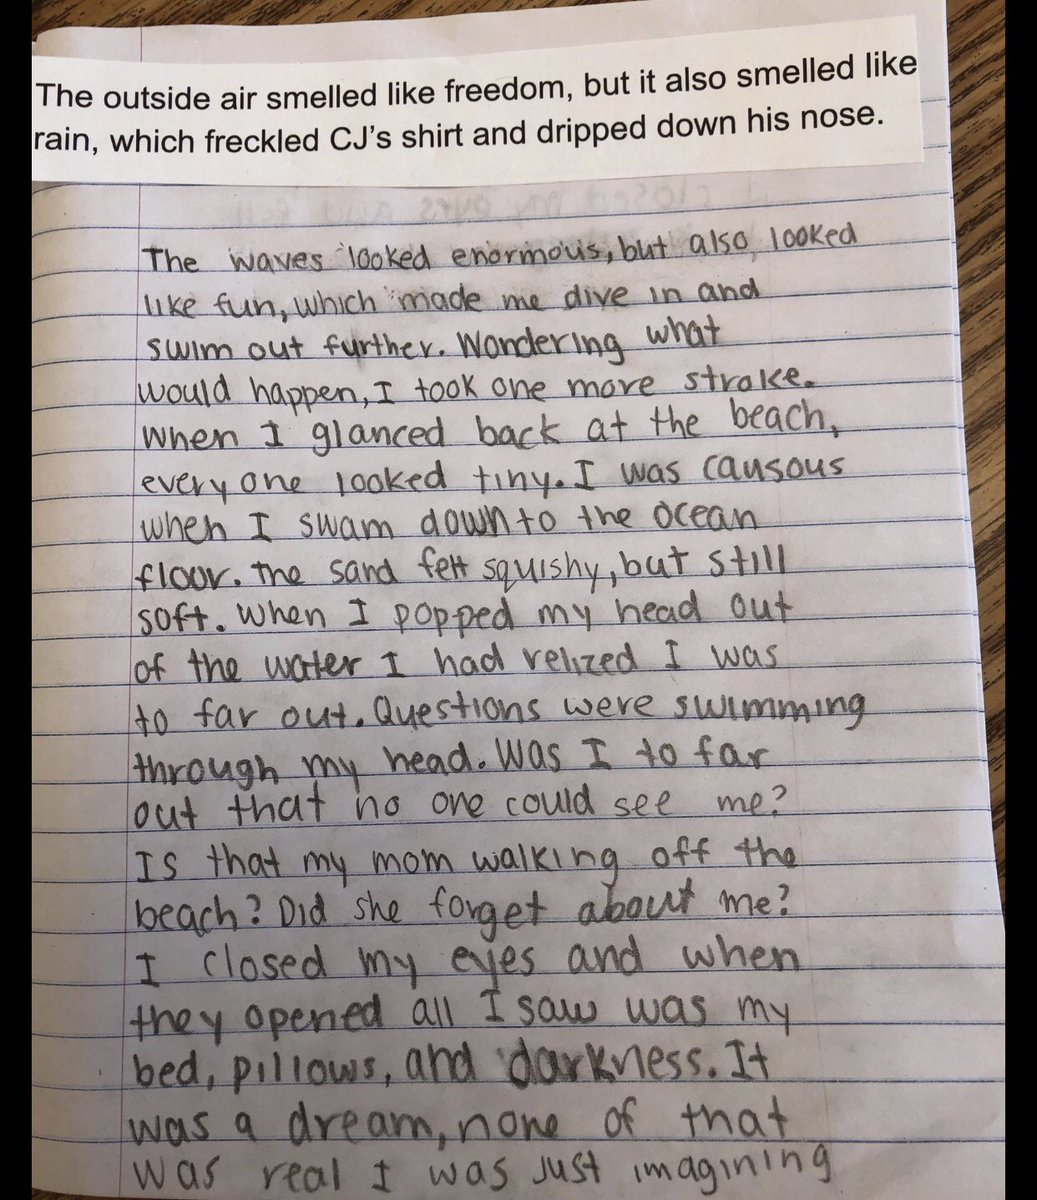 The outside air smelled like freedom, but it also smelled like
rain, which freckled CJ's shirt and dripped down his nose.
The waves looked enormous, but also looked
like fun, which made me dive in and
swim out further. Wondering what
would happen, I took one more stroke.
When I glanced back at the beach,
everyone looked tiny. I was causous
when I swam down to the ocean
floor. The sand felt squishy, but still
soft. When I popped my head out
of the water I had relized I was
to far out. Questions were swimming
through my head. Was I to far
out that no one could see me?
Is that my mom walking off the
beach? Did she forget about me?
I closed my eyes and when
they opened all I saw was my
bed, pillows, and darkness. It
was a dream, none of that
was real I was just imagining